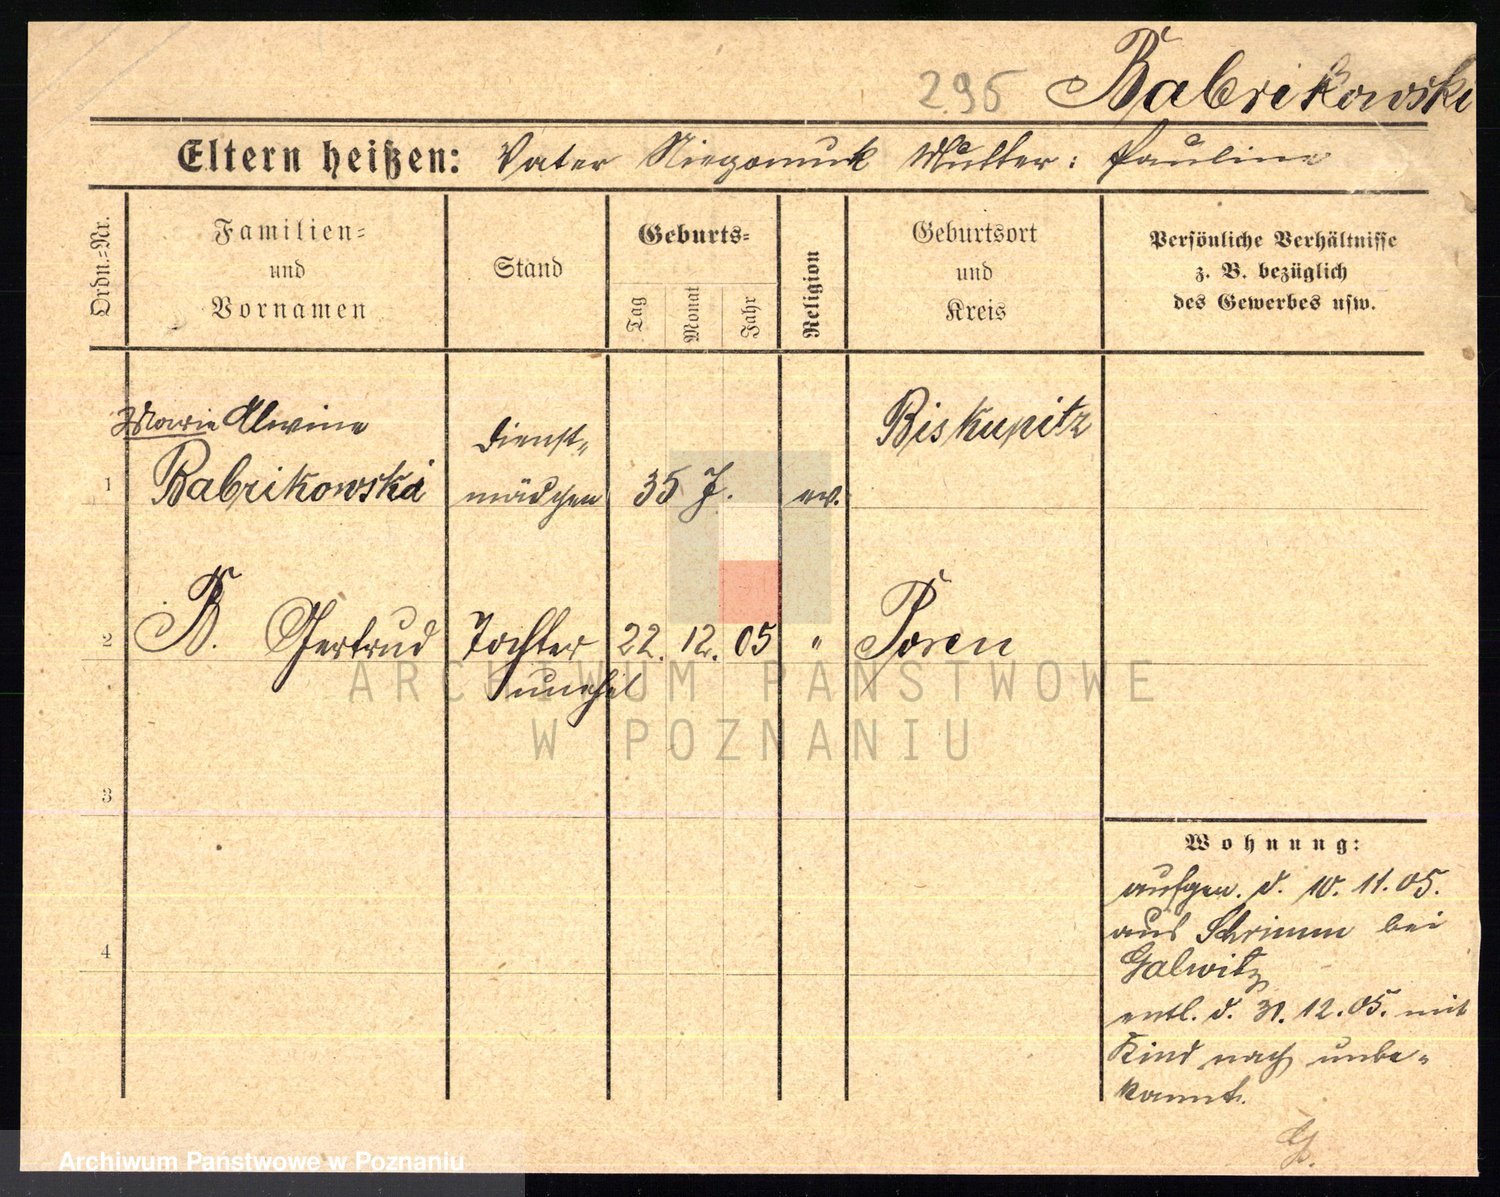 295 Babrikowski
Eltern heißen: Vater Niepomuk Mutter: Pauline
Ordn.-Nr.
Familien-
und
Vornamen
Stand
Geburts-
Tag
Monat
Jahr
Religion
Geburtsort
und
Kreis
Persönliche Verhältnisse
z. B. bezüglich
des Gewerbes usw.
Marie Alwine
1 Babrikowska
Dienst-
mädchen
35 J.
ev.
Biskupitz
2 B. Gertrud
Tochter
unehel
22. 12. 05
"
Posen
3
4
Wohnung:
aufgen. d. 10. 11. 05.
aus Schrimm bei
Galwitz
entl. d. 31. 12. 05. mit
Kind nach unbe-
kannt.
G.
ARCHIWUM PAŃSTWOWE
W POZNANIU
Archiwum Państwowe w Poznaniu